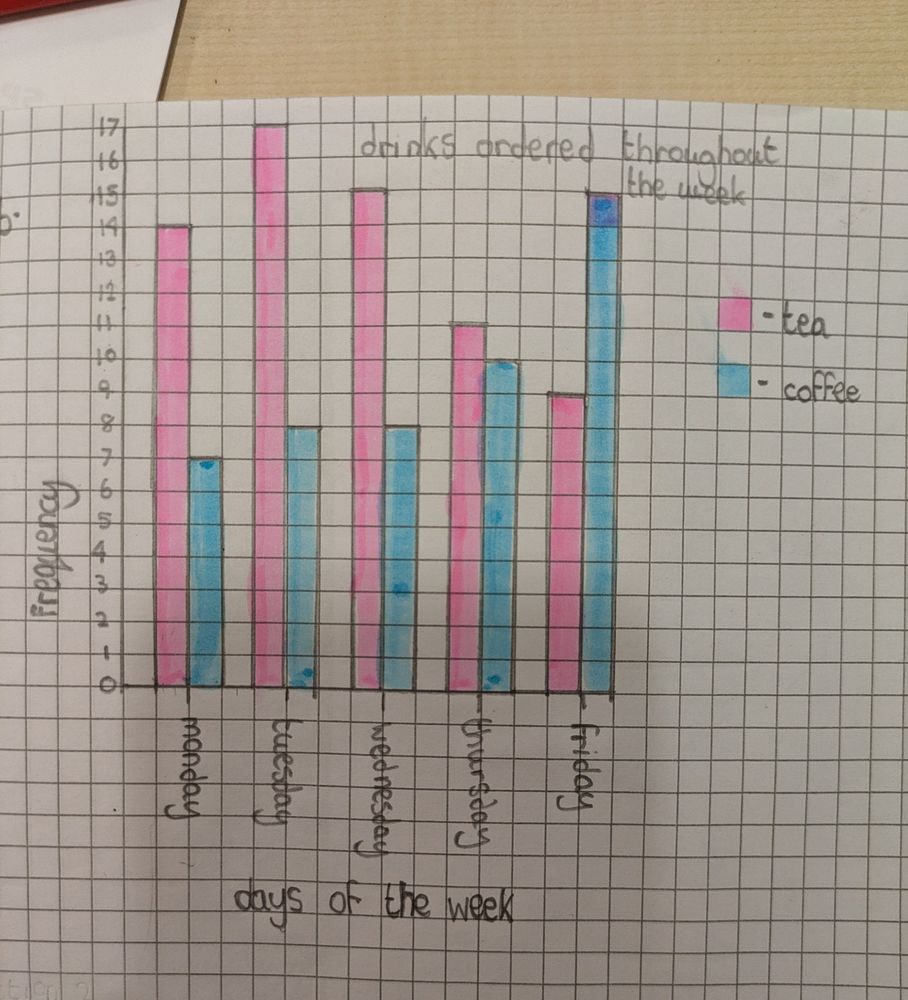 drinks ordered throughout
the week
17
16
15
14
13
12
11
10
9
8
7
6
5
4
3
2
1
0
Frequency
- tea
- coffee
monday
tuesday
wednesday
thursday
friday
days of the week